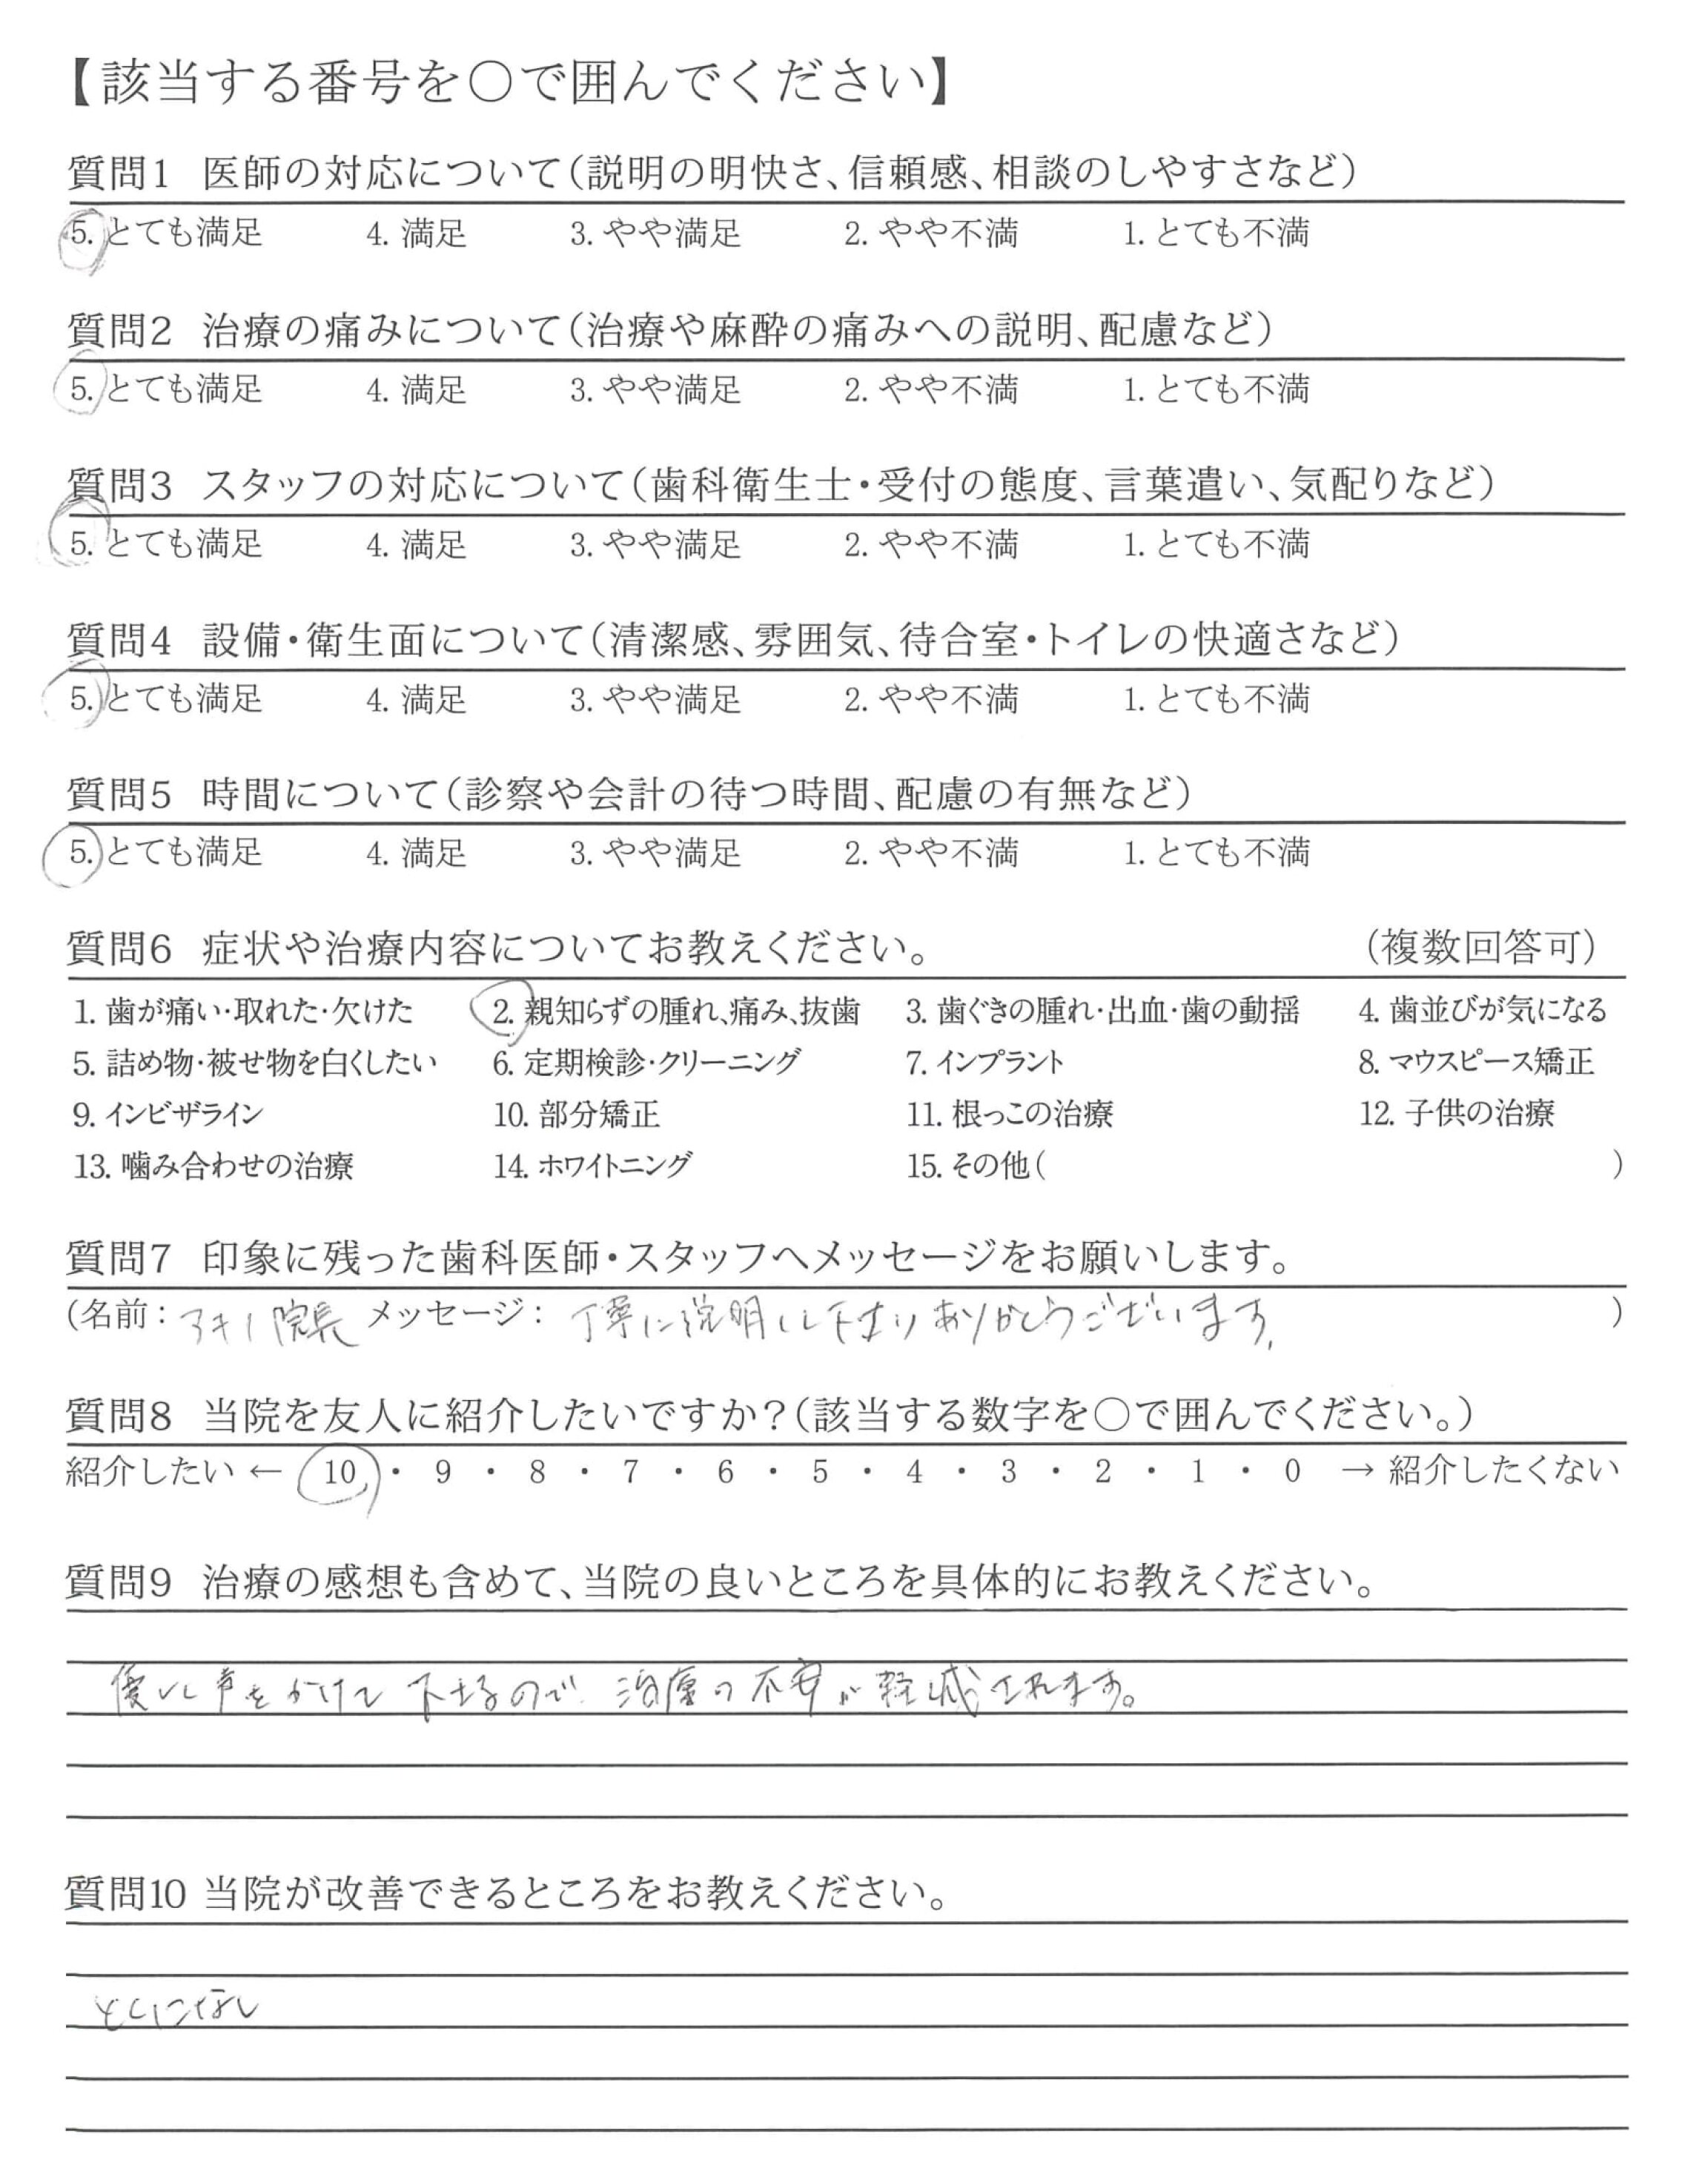 【該当する番号を○で囲んでください】
質問1 医師の対応について(説明の明快さ、信頼感、相談のしやすさなど)
5. とても満足 4. 満足 3. やや満足 2. やや不満 1. とても不満
質問2 治療の痛みについて(治療や麻酔の痛みへの説明、配慮など)
5. とても満足 4. 満足 3. やや満足 2. やや不満 1. とても不満
質問3 スタッフの対応について(歯科衛生士・受付の態度、言葉遣い、気配りなど)
5. とても満足 4. 満足 3. やや満足 2. やや不満 1. とても不満
質問4 設備・衛生面について(清潔感、雰囲気、待合室・トイレの快適さなど)
5. とても満足 4. 満足 3. やや満足 2. やや不満 1. とても不満
質問5 時間について(診察や会計の待つ時間、配慮の有無など)
5. とても満足 4. 満足 3. やや満足 2. やや不満 1. とても不満
質問6 症状や治療内容についてお教えください。 (複数回答可)
1. 歯が痛い・取れた・欠けた 2. 親知らずの腫れ、痛み、抜歯 3. 歯ぐきの腫れ・出血・歯の動揺 4. 歯並びが気になる
5. 詰め物・被せ物を白くしたい 6. 定期検診・クリーニング 7. インプラント 8. マウスピース矯正
9. インビザライン 10. 部分矯正 11. 根っこの治療 12. 子供の治療
13. 噛み合わせの治療 14. ホワイトニング 15. その他( )
質問7 印象に残った歯科医師・スタッフへメッセージをお願いします。
(名前: 院長 メッセージ: 丁寧に説明して下さりありがとうございます。 )
質問8 当院を友人に紹介したいですか?(該当する数字を○で囲んでください。)
紹介したい ← 10 ・ 9 ・ 8 ・ 7 ・ 6 ・ 5 ・ 4 ・ 3 ・ 2 ・ 1 ・ 0 → 紹介したくない
質問9 治療の感想も含めて、当院の良いところを具体的にお教えください。
優しく声をかけて下さるので、治療の不安が軽減されます。
質問10 当院が改善できるところをお教えください。
とくになし